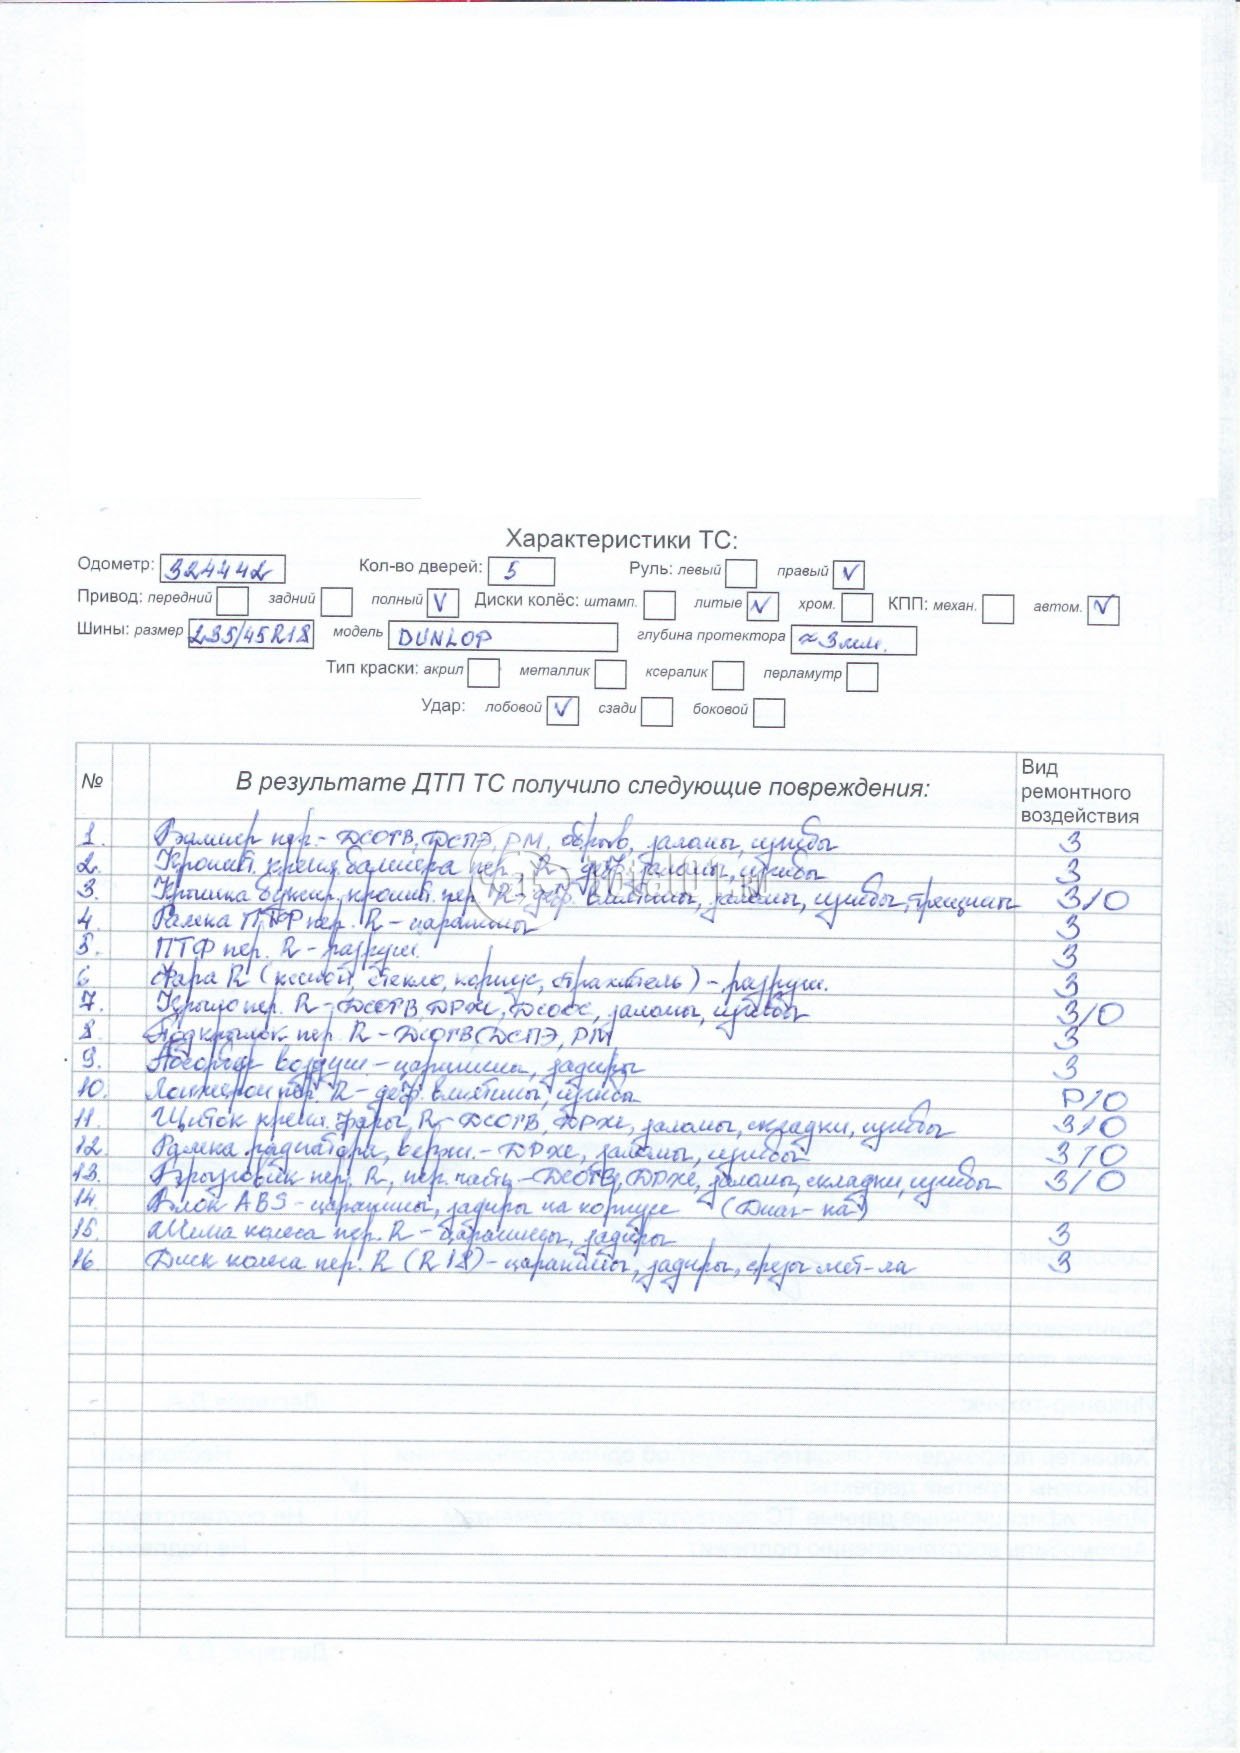 Характеристики ТС:
Одометр: 324442 Кол-во дверей: 5 Руль: левый правый V
Привод: передний задний полный V Диски колёс: штамп. литые V хром. КПП: механ. автом. V
Шины: размер 235/45R18 модель DUNLOP глубина протектора ≈3мм.
Тип краски: акрил металлик ксералик перламутр
Удар: лобовой V сзади боковой
№ В результате ДТП ТС получило следующие повреждения: Вид
ремонтного
воздействия
1. Бампер пер. - ДСОТВ, ДСПЭ, РМ, обрыв, заломы, изгибы З
2. Кроншт. крепл. бампера пер. R - деф. заломы, изгибы З
3. Крышка буксир. кроншт. пер. R - деф. вмятины, заломы, изгибы, трещины З/О
4. Рамка ПТФ пер. R - царапины З
5. ПТФ пер. R - разруш. З
6 Фара R (ксенон, стекло, корпус, отражатель) - разруш. З
7. Крыло пер. R - ДСОТВ, ДРЖ, заломы, изгибы З/О
8 Подкрылок пер. R - ДСОТВ (ДСПЭ, РМ З
9. Абсорбер воздуш. - царапины, задиры З
10. Лонжерон пер. R - деф. вмятины, изгибы Р/О
11. Щиток крепл. фары R - ДСОТВ, ДРЖ, заломы, складки, изгибы З/О
12. Рамка радиатора, верхн. - ДРЖ, заломы, изгибы З/О
13. Брызговик пер. R, пер. часть - ДСОТВ, ДРЖ, заломы, складки, изгибы З/О
14. Блок ABS - царапины, задиры на корпусе (Диаг-ка)
15. Шина колеса пер. R - царапины, задиры З
16. Диск колеса пер. R (R18) - царапины, задиры, срезы мет-ла З